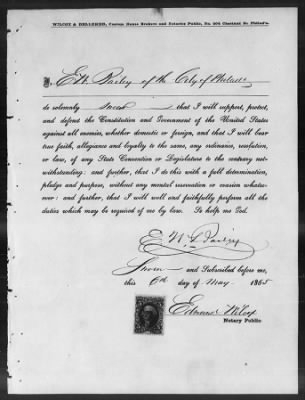 WILCOX & BELLERJE, Custom House Brokers and Notaries Public, No. 406 Chestnut St. Philad'a.
I, E. W. of the City of Philada
do solemnly swear that I will support, protect,
and defend the Constitution and Government of the United States
against all enemies, whether domestic or foreign, and that I will bear
true faith, allegiance and loyalty to the same, any ordinance, resolution,
or law, of any State Convention or Legislature to the contrary not-
withstanding: and further, that I do this with a full determination,
pledge and purpose, without any mental reservation or evasion whatso-
ever: and further, that I will well and faithfully perform all the
duties which may be required of me by law. So help me God.
E. W.
Sworn and Subscribed before me,
this 6th day of May 1865
Edmund Wilcox
Notary Public.